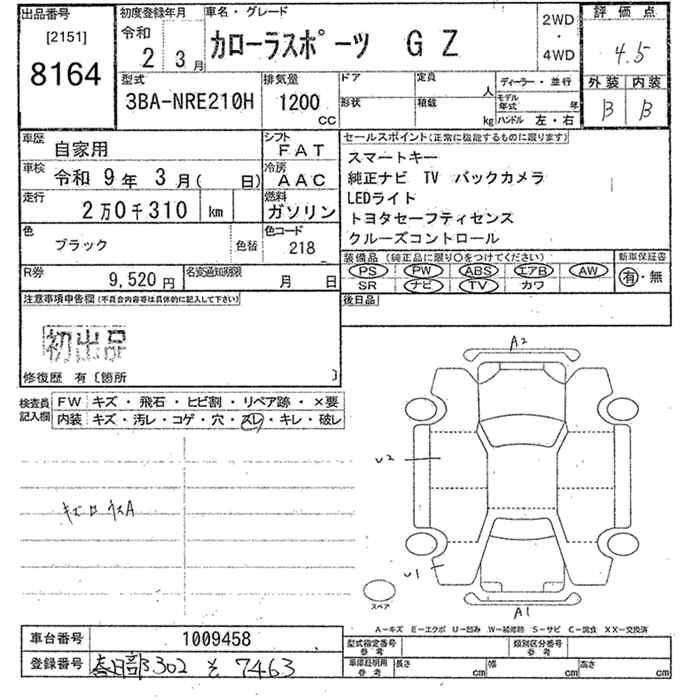 出品番号
[2151]
8164
初度登録年月
令和
2 3月
車名・グレード
カローラスポーツ G Z
2WD
・
4WD
評価点
4.5
外装 内装
B B
型式
3BA-NRE210H
排気量
1200
cc
ドア
形状
定員
人
積載
kg
ディーラー・並行
モデル年式 年
ハンドル 左・右
車歴
自家用
シフト
FAT
車検
令和 9年 3月( 日)
冷房
AAC
走行
2万0千310 km
燃料
ガソリン
色
ブラック
色替
色コード
218
R券
9,520円
名変通知期限
月 日
セールスポイント(正常に機能するものに限ります)
スマートキー
純正ナビ TV バックカメラ
LEDライト
トヨタセーフティセンス
クルーズコントロール
装備品 (純正品に限り○をつけてください)
新車保証書
PS PW ABS エアB AW
SR ナビ TV カワ
有・無
後日品
注意事項申告欄(不具合内容等は具体的に記入して下さい)
初出品
修復歴 有〔箇所 〕
検査員記入欄
FW キズ・飛石・ヒビ割・リペア跡・×要
内装 キズ・汚レ・コゲ・穴・スレ・キレ・破レ
A2
U2
U1
A1
スペア
A−キズ E−エクボ U−凹み W−補修跡 S−サビ C−腐食 XX−交換済
車台番号 1009458
登録番号 春日部302 そ 7463
型式指定番号
参考
類別区分番号
参考
車庫証明用
参考
長さ cm 幅 cm 高さ cm